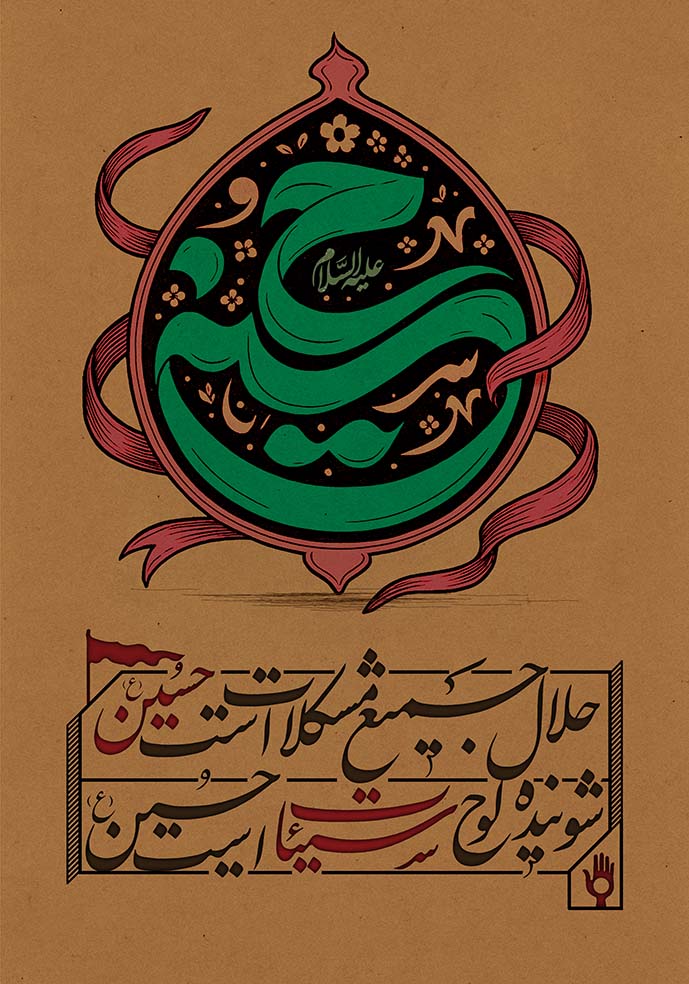 حسین
علیه السَّلام
حلال جمیع مشکلات است حُسین (ع)
شوینده لوح سیئات است حُسین (ع)